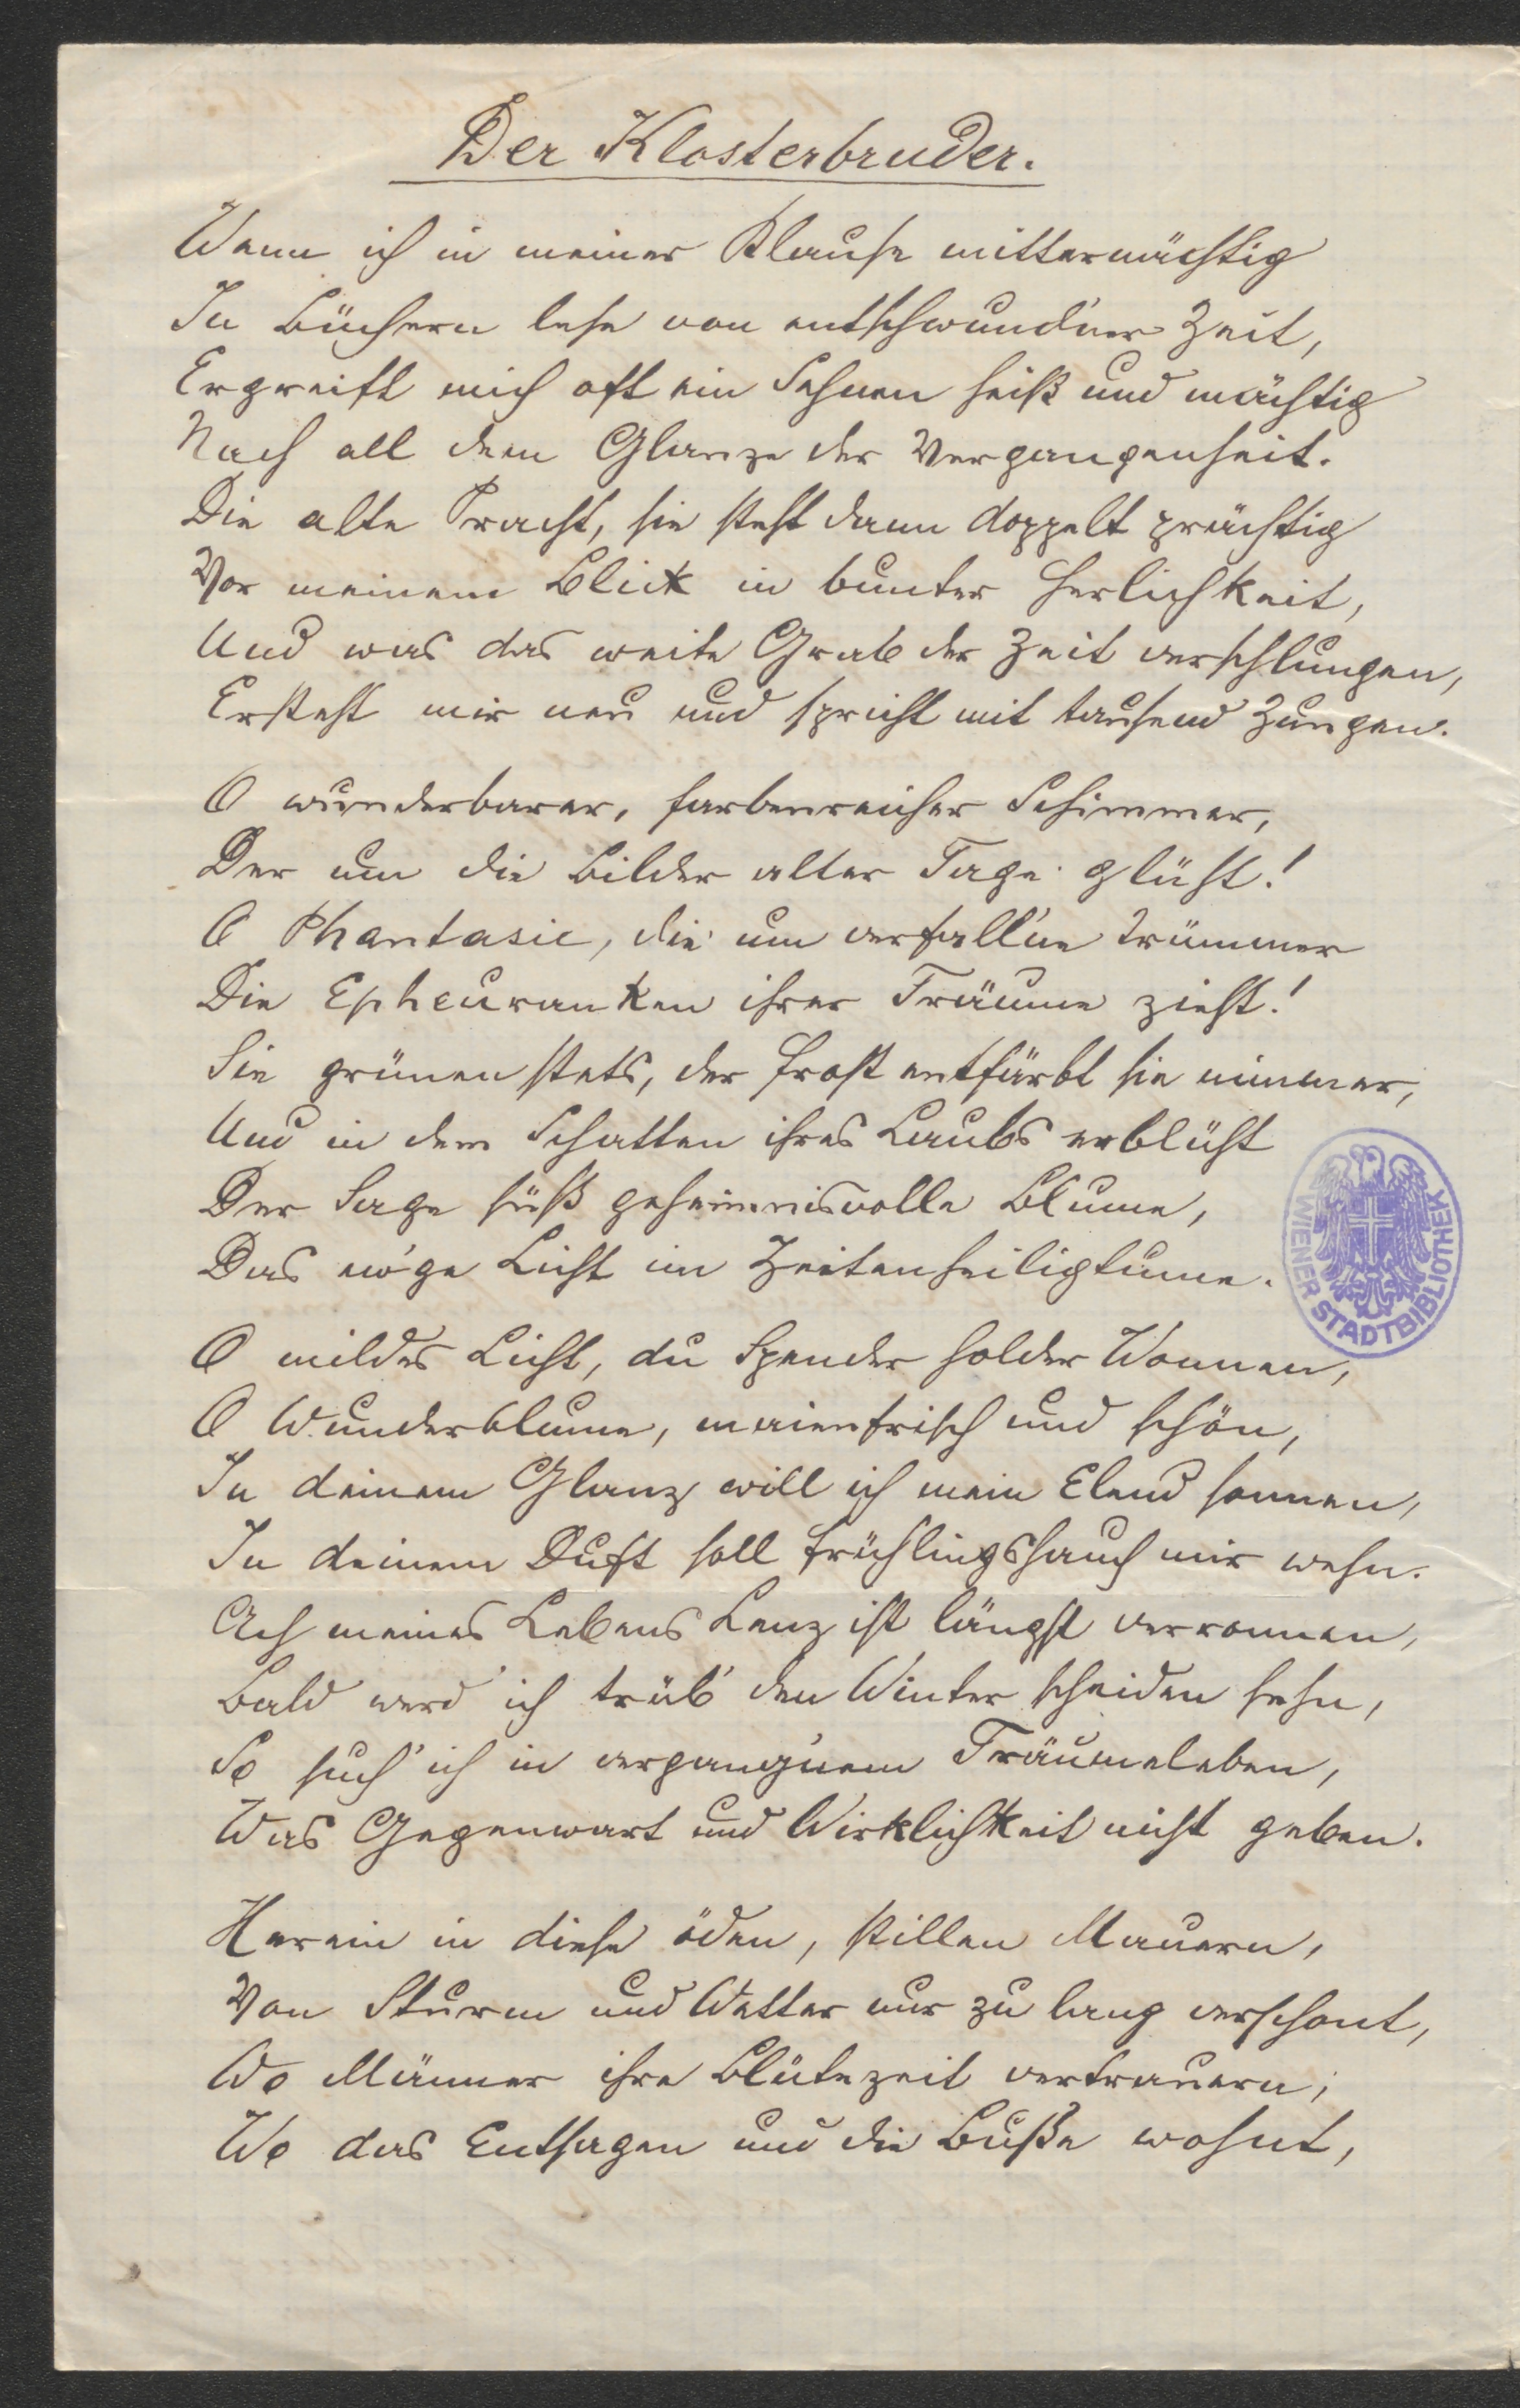 Der Klosterbruder.
Wenn ich in meiner Klause mitternächtig
In Büchern lese von entschwund'ner Zeit,
Ergreift mich oft ein Sehnen heiß und mächtig
Nach all dem Glanze der Vergangenheit.
Die alte Pracht, sie steht dann doppelt prächtig
Vor meinem Blick in bunter Herlichkeit,
Und was das weite Grab der Zeit verschlungen,
Ersteht mir neu und spricht mit tausend Zungen.
O wunderbarer, farbenreicher Schimmer,
Der um die Bilder alter Tage glüht!
O Phantasie, die um verfall'ne Trümmer
Die Epheuranken ihrer Träume zieht!
Sie grünen stets, der Frost entfärbt sie nimmer,
Und in dem Schatten ihres Laubs erblüht
Der Sage süß geheimnisvolle Blume,
Das ew'ge Licht im Zeitenheiligtume.
O mildes Licht, du Spender holder Wonnen,
O Wunderblume, maienfrisch und schön,
In deinem Glanz will ich mein Elend sonnen,
In deinem Duft soll Frühlingshauch mir wehn.
Ach meines Lebens Lenz ist längst verronnen,
Bald werd' ich trüb' den Winter scheiden sehn,
So such' ich in vergang'nem Träumeleben,
Was Gegenwart und Wirklichkeit nicht geben.
Herein in diese öden, stillen Mauern,
Von Sturm und Wetter nur zu lang verschont,
Wo Männer ihre Blütezeit vertrauern,
Wo das Entsagen und die Buße wohnt,
WIENER STADTBIBLIOTHEK